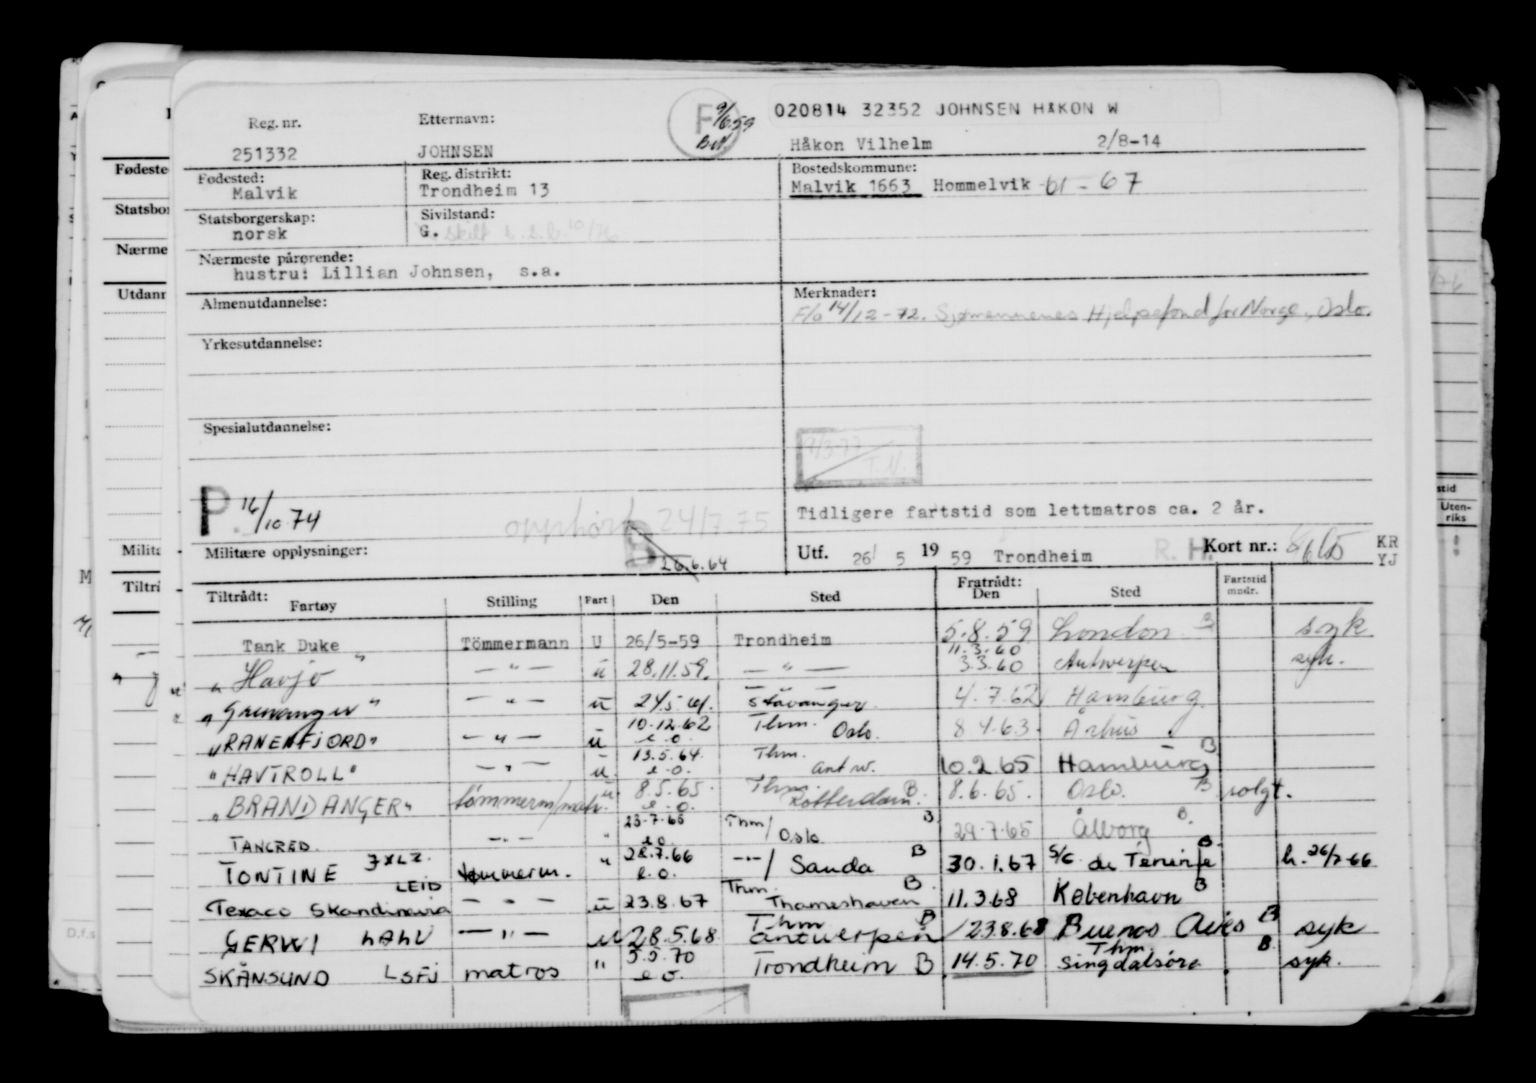 020814 32352 JOHNSEN HAKON W
Reg. nr. Etternavn: F 9/6.59
251332 JOHNSEN Håkon Vilhelm 2/8-14
Fødested: Reg. distrikt: Bostedskommune:
Malvik Trondheim 13 Malvik 1663 Hommelvik 61 - 67
Statsborgerskap: Sivilstand:
norsk G.
Nærmeste pårørende:
hustru: Lillian Johnsen, s.a.
Almenutdannelse: Merknader:
F/o 14/12-72. Sjømennenes Hjelpefond for Norge, Oslo.
Yrkesutdannelse:
Spesialutdannelse:
9/3-77
T.N.
P. 16/10-74 Tidligere fartstid som lettmatros ca. 2 år.
opphørt 24/7.75
Militære opplysninger: B 26.6.64 Utf. 26 5 19 59 Trondheim R. H. Kort nr.: KR
YJ
Tiltrådt: Fratrådt:
Fartøy Stilling Fart Den Sted Den Sted Fartstid mndr.
Tank Duke Tömmermann U 26/5-59 Trondheim 5.8.59 London B syk
11.3.60
"Havjo" — " — u 28.11.59. — " — 3.3.60 Antwerpen syk.
"Grenanger" — " — u 24.5.61. Stavanger 4.7.62 Hamburg
10.12.62 Thm.
"RANENFJORD" — " — u e.o. Oslo. 8.4.63. Århus
13.5.64 Thm. B
"HAVTROLL" — " — u e.o. antw. 10.2.65 Hamburg
8.5.65. Thm. B
"BRANDANGER" tömmerm/matr. u e.o. Rotterdam. 8.6.65. Oslo. B solgt.
23.7.65 Thm/ B
TANCRED — " — " e.o. Oslo 29.7.65 Ålborg B.
TONTINE JXLZ tømmerm. " 28.7.66 e.o. — " — / Sauda B 30.1.67 S/C de Tenerife B h. 26/7-66
LEID Thm. B
Texaco Skandinavia — " — u 23.8.67 Thameshaven 11.3.68 København B
Thm B
GERWI LAHU — " — u 28.5.68 antwerpen 23.8.68 Buenos Aires B syk
5.5.70 Thm. B
SKÅNSUND LSFJ matros " e.o. Trondheim B 14.5.70 Singdalsøra syk.
Fødeste
Statsbor
Nærme
Utdann
Milita
Tiltri
D.f.s
stid
Uten-
riks